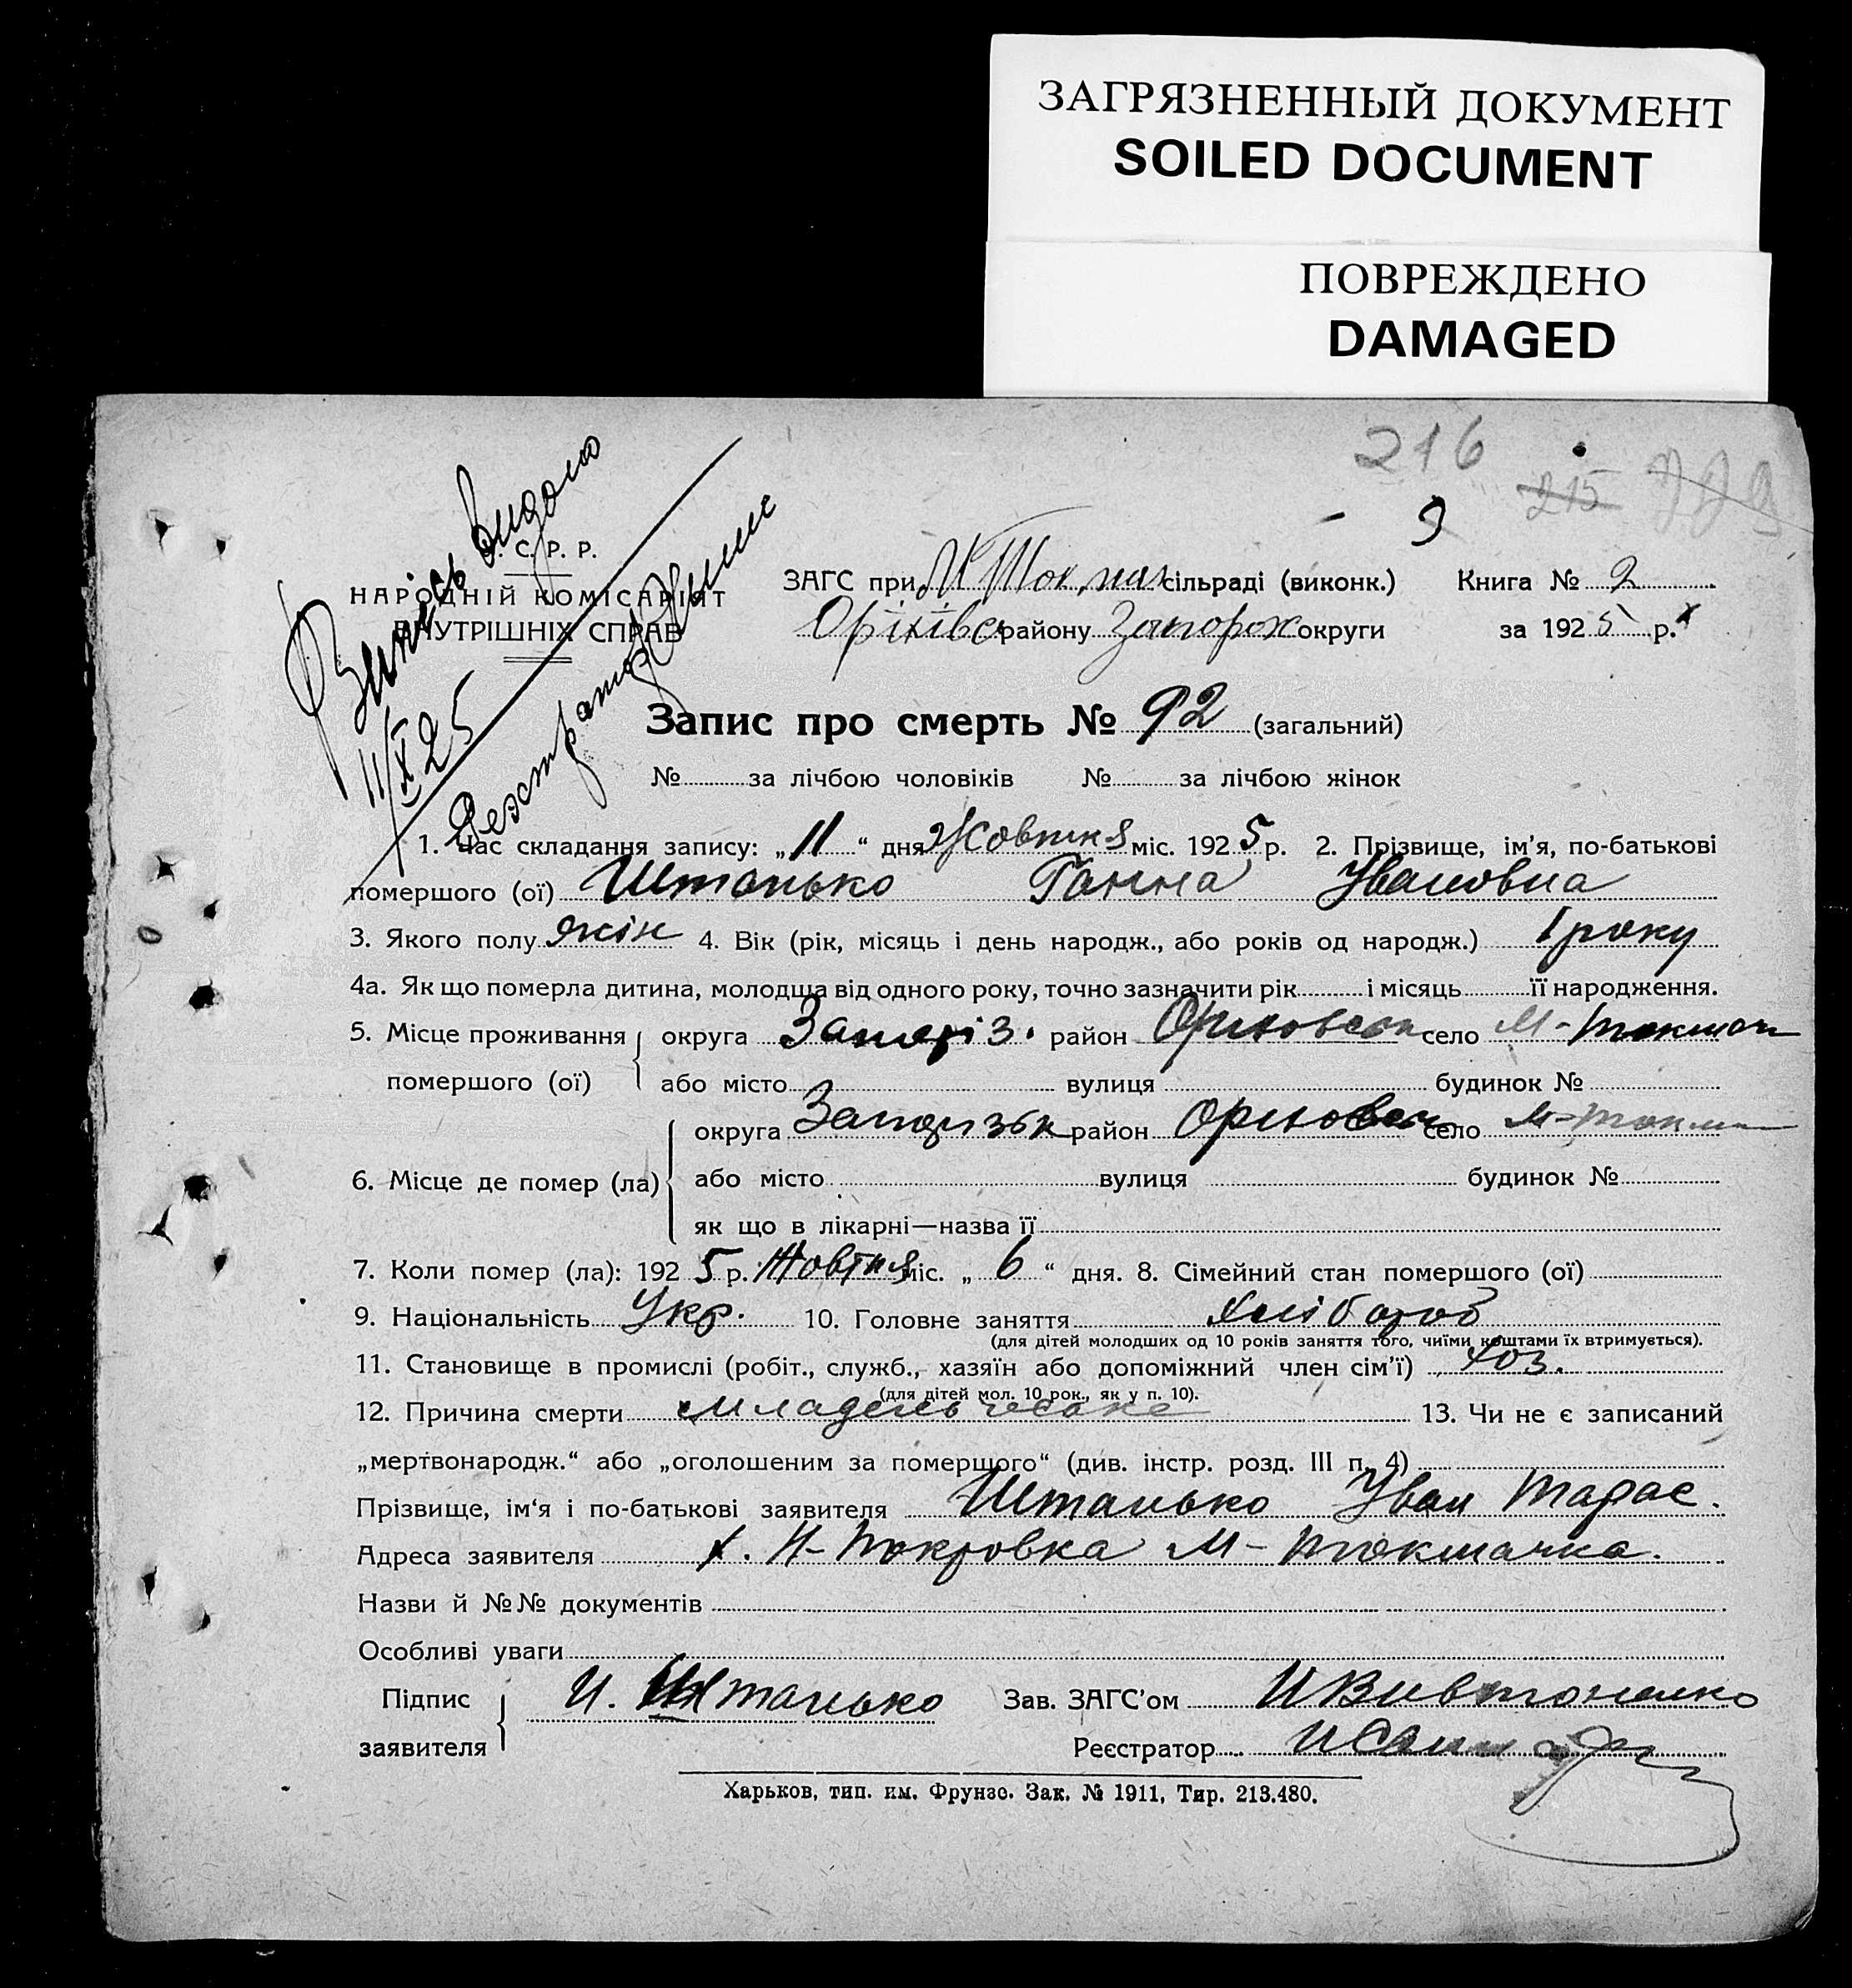 ЗАГРЯЗНЕННЫЙ ДОКУМЕНТ
SOILED DOCUMENT
ПОВРЕЖДЕНО
DAMAGED
216
215
9
Випісь видано
11/X 25
С. Р. Р.
НАРОДНІЙ КОМІСАРІЯТ
ВНУТРІШНІХ СПРАВ
ЗАГС при М Токмач сільраді (виконк.) Книга № 2
Оріхівс району Запорож округи за 1925 р.
Запис про смерть № 92 (загальний)
№ за лічбою чоловіків № за лічбою жінок
1. Час складання запису: „11“ дня Жовтня міс. 1925 р. 2. Прізвище, ім'я, по-батькові
помершого (ої) Штанько Ганна Ивановна
3. Якого полу жін 4. Вік (рік, місяць і день народж., або років од народж.) 1 року
4а. Як що померла дитина, молодща від одного року, точно зазначити рік і місяць її народження.
5. Місце проживання округа Запоріз. район Ориховськ село М-Токмач
помершого (ої) або місто вулиця будинок №
округа район Орихов село М-Токм
6. Місце де помер (ла) або місто вулиця будинок №
як що в лікарні—назва її
7. Коли помер (ла): 1925 р. Жовтня міс. „6“ дня. 8. Сімейний стан помершого (ої)
9. Національність Укр. 10. Головне заняття хлібороб
(для дітей молодших од 10 років заняття того, чиїми коштами їх втримується).
11. Становище в промислі (робіт., служб., хазяїн або допоміжний член сім'ї) хоз.
(для дітей мол. 10 рок., як у п. 10).
12. Причина смерти младенческа 13. Чи не є записаний
„мертвонародж.“ або „оголошеним за померщого“ (див. інстр. розд. III п. 4)
Прізвище, ім'я і по-батькові заявителя Штанько Иван Тарас.
Адреса заявителя х. Н-Покровка М-Токмачка.
Назви й №№ документів
Особливі уваги
Підпис И. Штанько Зав. ЗАГС'ом
заявителя Реєстратор
Харьков, тип. им. Фрунзе. Зак. № 1911, Тир. 213.480.